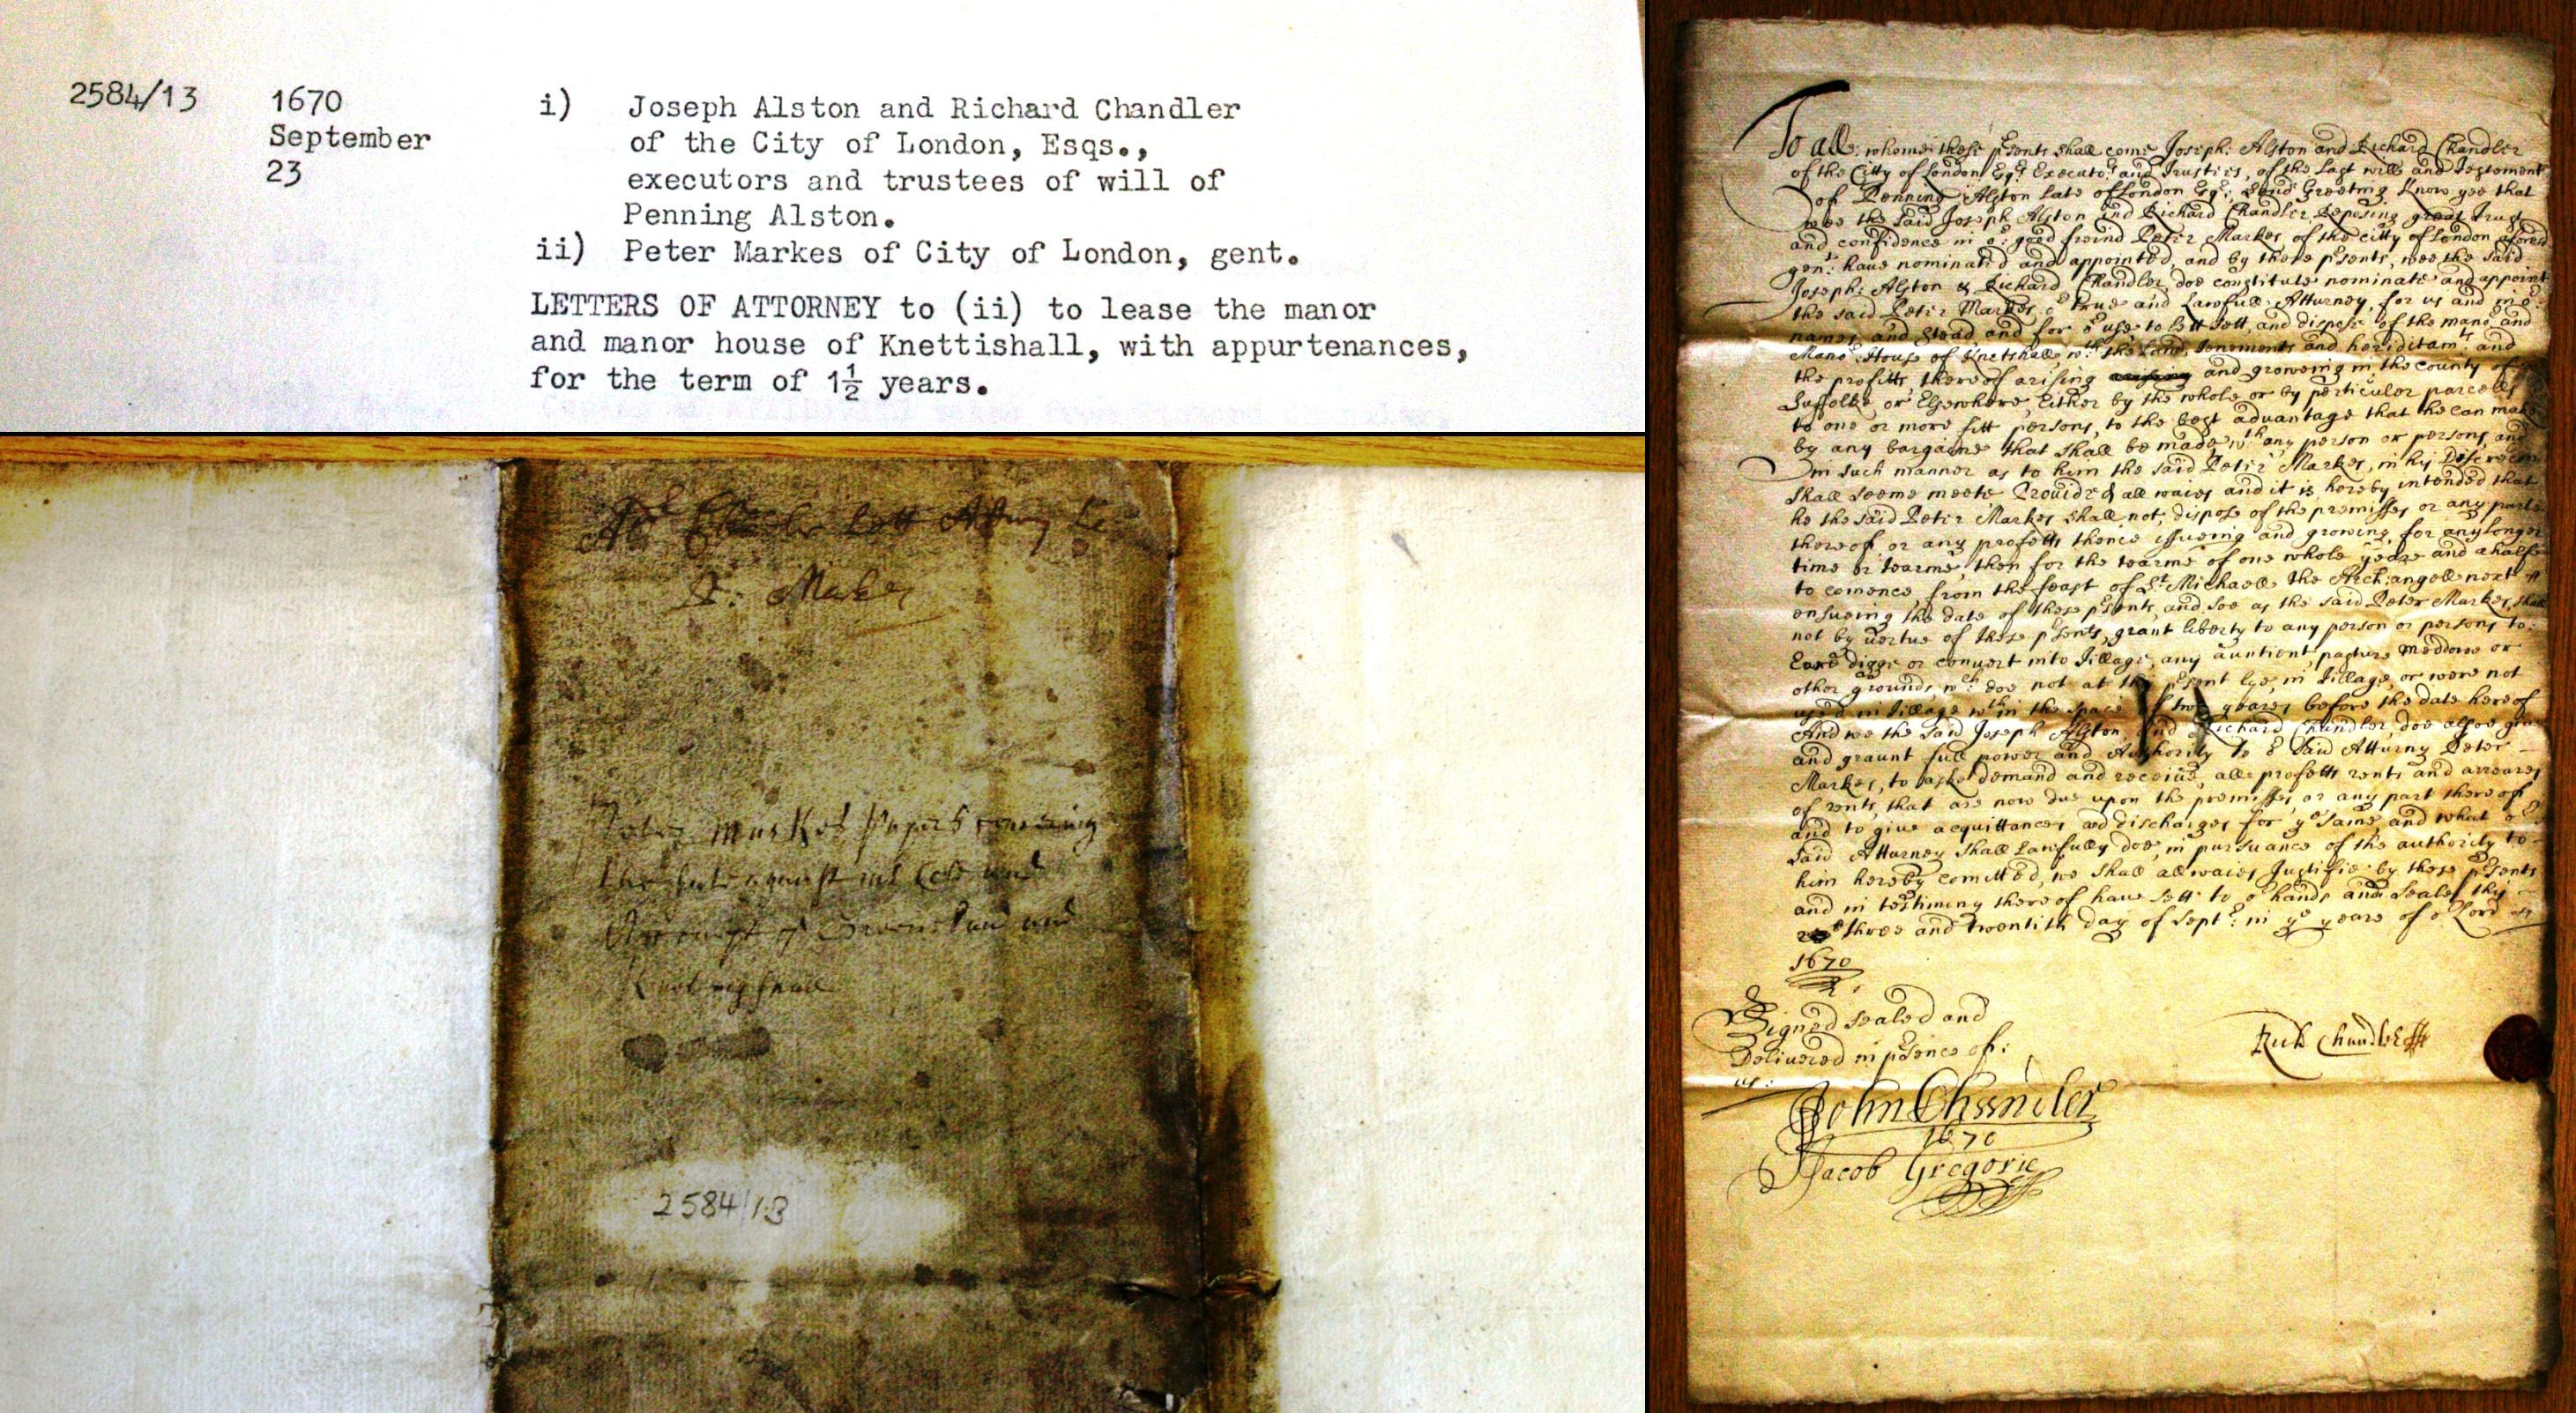 2584/13
1670
September
23
i) Joseph Alston and Richard Chandler
of the City of London, Esqs.,
executors and trustees of will of
Penning Alston.
ii) Peter Markes of City of London, gent.
LETTERS OF ATTORNEY to (ii) to lease the manor
and manor house of Knettishall, with appurtenances,
for the term of 1½ years.
Lett Attorny
P: Markes
Peter Markes Papers
the sute against and
and
2584/13
To all: whome these psents shall come Joseph: Alston and Richard Chandler
of the Citty of London Esqrs: Executors and Trustees, of the Last will and Testement
of Penning Alston late of London Esqr: Send Greeting Know yee that
wee the said Joseph Alston and Richard Chandler, Reposing great trust
and confidence in or: good freind Peter Markes, of the citty of London aforesd
gent: haue nominated and appointed, and by these psents, wee the said
Joseph: Alston & Richard Chandler, doe constitute nominate and appoint
the said Peter Markes, or true and Lawfull: Atturney, for us and in or:
names and stead, and for or use to lett sett, and dispose of the manor and
Manor House of Knetshall wth the Land, tenements and hereditamts: and
the profitts thereof arising and growing in the county of
Suffolke, or Elsewhere, Either by the whole or by perticuler parcells
to one or more fitt persons, to the best aduantage that he can make
by any bargaine that shall be made, wth any person or persons, and
in such manner as to him the said Peter Markes, in his Discrecon
shall seeme meete Prouided all waies and it is hereby intended that
he the said Peter Markes shall not, dispose of the premisses or any parte
thereof, or any profetts thence issueing and growing, for any longer
time or tearme, then for the tearme of one whole yeare and a halfe
to comence, from the feast of St: Michaell the Arch:angell next
ensueing the date of these psents, and soe as the said Peter Markes, shall
not by uertue of these psents, grant liberty to any person or persons to:
Eare digge or conuert into Tillage, any auntient, pasture meddowe or
other grounds, wch: doe not at the psent lye, in Tillage, or were not
used in Tillage wthin the space of two yeares before the date hereof
And we the said Joseph Alston, and Richard Chandler, doe alsoe giue
and graunt full power and Authority to or said Atturny Peter
Markes, to aske demand and receiue, all profetts rents and arreares
of rents, that are now due upon the premisses, or any part thereof
and to giue acquittances and discharges for ye same and what or
said Atturney shall Lawfully doe, in pursuance of the authority to
him hereby comitted, we shall allwaies Justifie by these psents
and in testimony thereof haue sett to or hands and seales this
three and twentith day of Septr: in ye yeare of or Lord
1670
Signed sealed and
Deliuered in psence of:
us:
John Chandler
1670
Jacob Gregorie
Rich Chandler